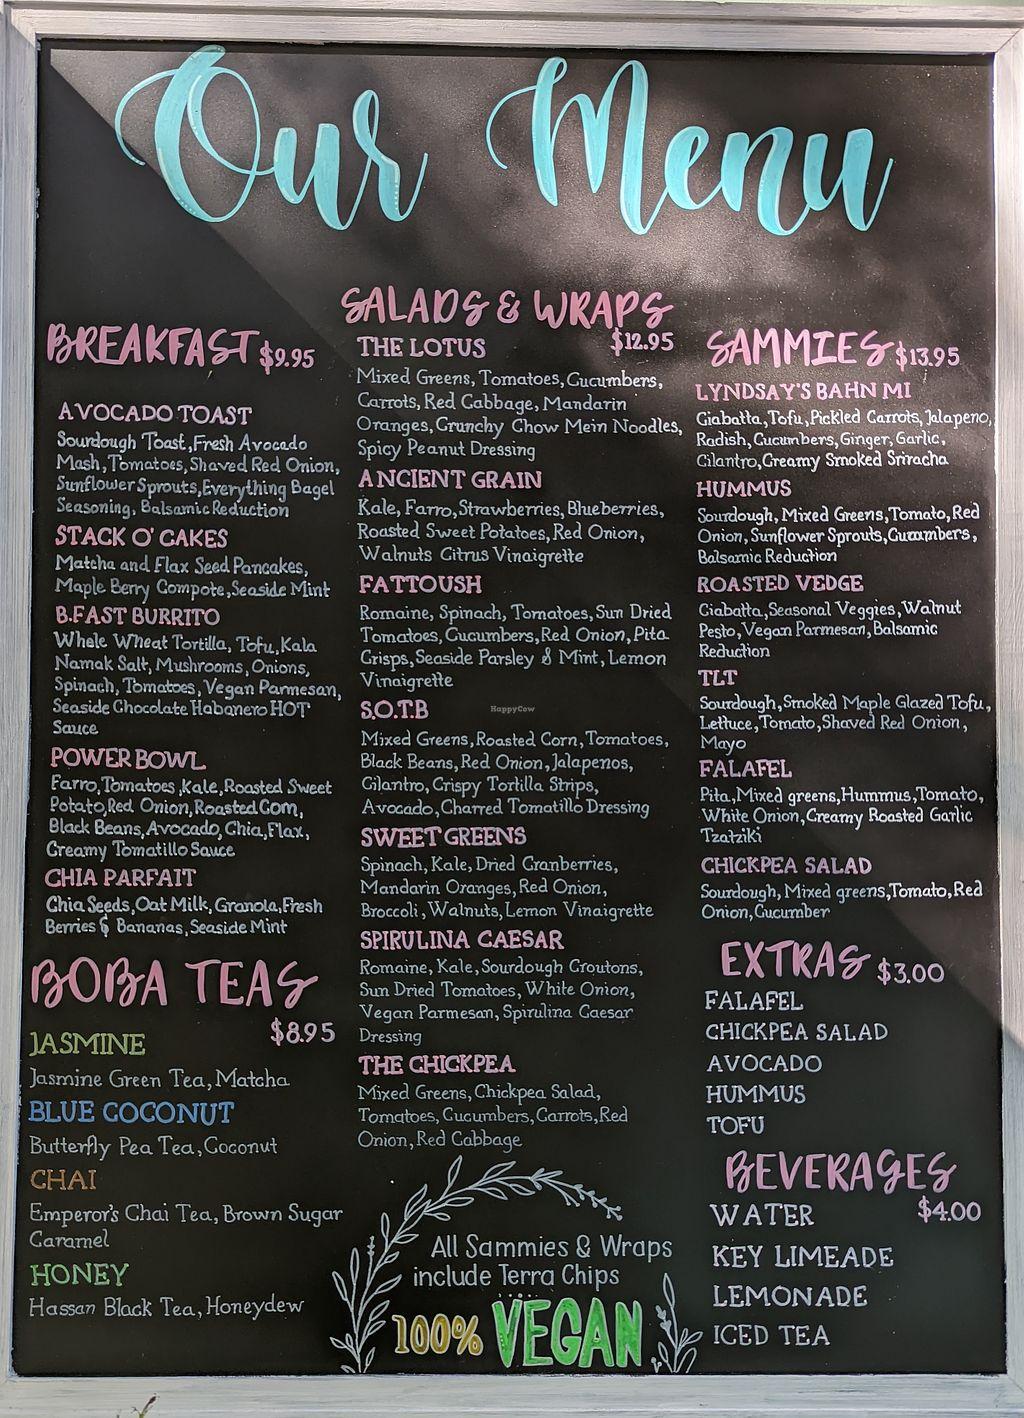 Our Menu
BREAKFAST $9.95
AVOCADO TOAST
Sourdough Toast, Fresh Avocado
Mash, Tomatoes, Shaved Red Onion,
Sunflower Sprouts, Everything Bagel
Seasoning, Balsamic Reduction
STACK O' CAKES
Matcha and Flax Seed Pancakes,
Maple Berry Compote, Seaside Mint
B.FAST BURRITO
Whole Wheat Tortilla, Tofu, Kala
Namak Salt, Mushrooms, Onions,
Spinach, Tomatoes, Vegan Parmesan,
Seaside Chocolate Habanero HOT
Sauce
POWER BOWL
Farro, Tomatoes, Kale, Roasted Sweet
Potato, Red Onion, Roasted Corn,
Black Beans, Avocado, Chia, Flax,
Creamy Tomatillo Sauce
CHIA PARFAIT
Chia Seeds, Oat Milk, Granola, Fresh
Berries & Bananas, Seaside Mint
BOBA TEAS
$8.95
JASMINE
Jasmine Green Tea, Matcha
BLUE COCONUT
Butterfly Pea Tea, Coconut
CHAI
Emperor's Chai Tea, Brown Sugar
Caramel
HONEY
Hassan Black Tea, Honeydew
SALADS & WRAPS
$12.95
THE LOTUS
Mixed Greens, Tomatoes, Cucumbers,
Carrots, Red Cabbage, Mandarin
Oranges, Crunchy Chow Mein Noodles,
Spicy Peanut Dressing
ANCIENT GRAIN
Kale, Farro, Strawberries, Blueberries,
Roasted Sweet Potatoes, Red Onion,
Walnuts Citrus Vinaigrette
FATTOUSH
Romaine, Spinach, Tomatoes, Sun Dried
Tomatoes, Cucumbers, Red Onion, Pita
Crisps, Seaside Parsley & Mint, Lemon
Vinaigrette
S.O.T.B
HappyCow
Mixed Greens, Roasted Corn, Tomatoes,
Black Beans, Red Onion, Jalapenos,
Cilantro, Crispy Tortilla Strips,
Avocado, Charred Tomatillo Dressing
SWEET GREENS
Spinach, Kale, Dried Cranberries,
Mandarin Oranges, Red Onion,
Broccoli, Walnuts, Lemon Vinaigrette
SPIRULINA CAESAR
Romaine, Kale, Sourdough Croutons,
Sun Dried Tomatoes, White Onion,
Vegan Parmesan, Spirulina Caesar
Dressing
THE CHICKPEA
Mixed Greens, Chickpea Salad,
Tomatoes, Cucumbers, Carrots, Red
Onion, Red Cabbage
All Sammies & Wraps
include Terra Chips
100% VEGAN
SAMMIES $13.95
LYNDSAY'S BAHN MI
Ciabatta, Tofu, Pickled Carrots, Jalapeno,
Radish, Cucumbers, Ginger, Garlic,
Cilantro, Creamy Smoked Sriracha
HUMMUS
Sourdough, Mixed Greens, Tomato, Red
Onion, Sunflower Sprouts, Cucumbers,
Balsamic Reduction
ROASTED VEDGE
Ciabatta, Seasonal Veggies, Walnut
Pesto, Vegan Parmesan, Balsamic
Reduction
TLT
Sourdough, Smoked Maple Glazed Tofu,
Lettuce, Tomato, Shaved Red Onion,
Mayo
FALAFEL
Pita, Mixed greens, Hummus, Tomato,
White Onion, Creamy Roasted Garlic
Tzatziki
CHICKPEA SALAD
Sourdough, Mixed greens, Tomato, Red
Onion, Cucumber
EXTRAS $3.00
FALAFEL
CHICKPEA SALAD
AVOCADO
HUMMUS
TOFU
BEVERAGES
WATER $4.00
KEY LIMEADE
LEMONADE
ICED TEA